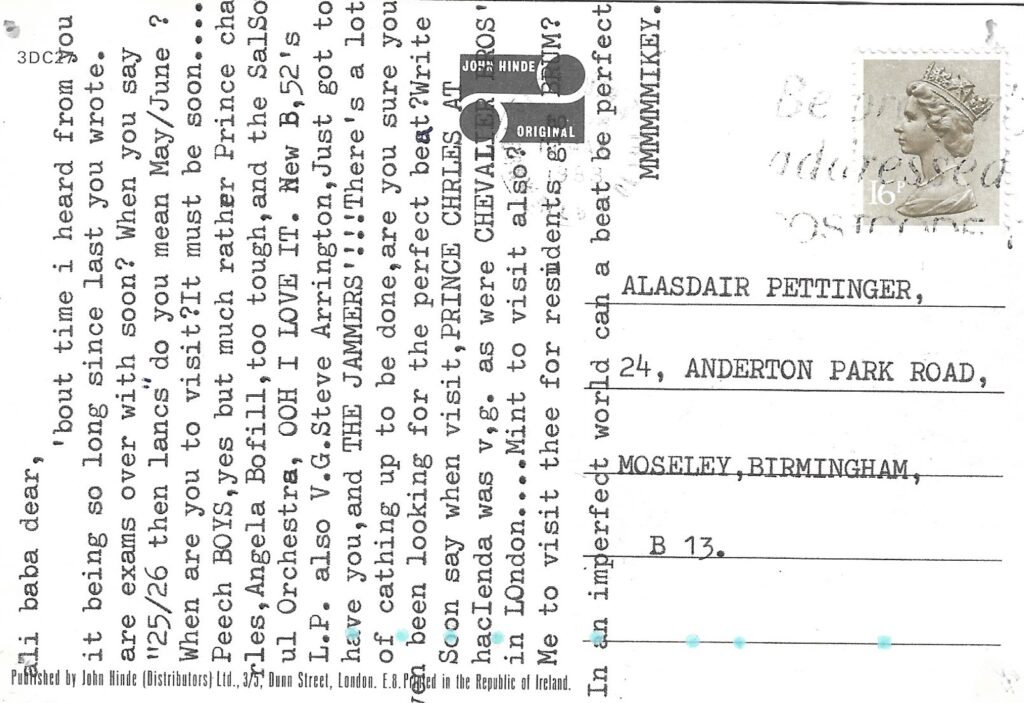 3DC27
ali baba dear,
'bout time i heard from you
it being so long since last you wrote.
are exams over with soon? When you say
"25/26 then lancs" do you mean May/June ?
When are you to visit?It must be soon....
Peech BOYS,yes but much rather Prince cha
rles,Angela Bofill,too tough,and the SalSo
ul Orchestra, OOH I LOVE IT. New B,52's
L.P. also V.G.Steve Arrington,Just got to
have you,and THE JAMMERS'!!!There's a lot
of cathing up to be done,are you sure you
been looking for the perfect beat?Write
Soon say when visit,PRINCE CHRLES AT
hacIenda was v,g. as were CHEVALIER BROS'
in LOndon....Mint to visit also?
Me to visit thee for residents BRUM?
In an imperfect world can a beat be perfect
MMMMMMIKEY.
JOHN HINDE
ORIGINAL
16P
Be
addressed
POSTCODE
ALASDAIR PETTINGER,
24, ANDERTON PARK ROAD,
MOSELEY,BIRMINGHAM,
B 13.
Published by John Hinde (Distributors) Ltd., 3/5, Dunn Street, London. E.8. Printed in the Republic of Ireland.